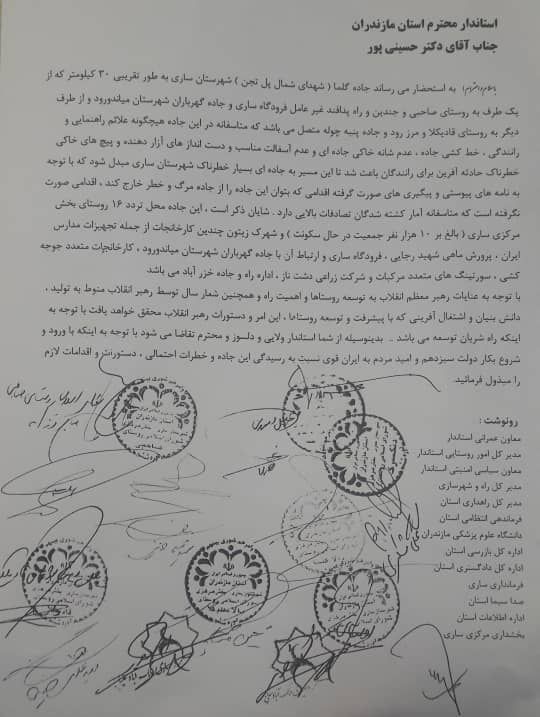 استاندار محترم استان مازندران
جناب آقای دکتر حسینی پور
باسلام و احترام؛ به استحضار می رساند جاده گلما ( شهدای شمال پل تجن ) شهرستان ساری به طور تقریبی ۳۰ کیلومتر که از
یک طرف به روستای صاحبی و جندین و راه پدافند غیر عامل فرودگاه ساری و جاده گهرباران شهرستان میاندورود و از طرف
دیگر به روستای قادیکلا و مرز رود و جاده پنبه چوله متصل می باشد که متاسفانه در این جاده هیچگونه علائم راهنمایی و
رانندگی ، خط کشی جاده ، عدم شانه خاکی جاده ای و عدم آسفالت مناسب و دست انداز های آزار دهنده و پیچ های خاکی
خطرناک حادثه آفرین برای رانندگان باعث شد تا این مسیر به جاده ای بسیار خطرناک شهرستان ساری مبدل شود که با توجه
به نامه های پیوستی و پیگیری های صورت گرفته اقدامی که بتوان این جاده را از جاده مرگ و خطر خارج کند ، اقدامی صورت
نگرفته است که متاسفانه آمار کشته شدگان تصادفات بالایی دارد . شایان ذکر است ، این جاده محل تردد ۱۶ روستای بخش
مرکزی ساری ( بالغ بر ۱۰ هزار نفر جمعیت در حال سکونت ) و شهرک زیتون چندین کارخانجات از جمله تجهیزات مدارس
ایران ، پرورش ماهی شهید رجایی ، فرودگاه ساری و ارتباط آن با جاده گهرباران شهرستان میاندورود ، کارخانجات متعدد جوجه
کشی ، سورتینگ های متعدد مرکبات و شرکت زراعی دشت ناز ، اداره راه و جاده خزر آباد می باشد
با توجه به عنایات رهبر معظم انقلاب به توسعه روستاها و اهمیت راه و همچنین شعار سال توسط رهبر انقلاب منوط به تولید ،
دانش بنیان و اشتغال آفرینی که با پیشرفت و توسعه روستاها ، این امر و دستورات رهبر انقلاب محقق خواهد یافت با توجه به
اینکه راه شریان توسعه می باشد .. بدینوسیله از شما استاندار ولایی و دلسوز و محترم تقاضا می شود با توجه به اینکه با ورود و
شروع بکار دولت سیزدهم و امید مردم به ایران قوی نسبت به رسیدگی این جاده و خطرات احتمالی ، دستورات و اقدامات لازم
را مبذول فرمائید.
رونوشت :
معاون عمرانی استاندار
مدیر کل امور روستایی استاندار
معاون سیاسی امنیتی استاندار
مدیر کل راه و شهرسازی
مدیر کل راهداری استان
فرماندهی انتظامی استان
دانشگاه علوم پزشکی مازندران
اداره کل بازرسی استان
اداره کل دادگستری استان
فرمانداری ساری
صدا سیما استان
اداره اطلاعات استان
بخشداری مرکزی ساری